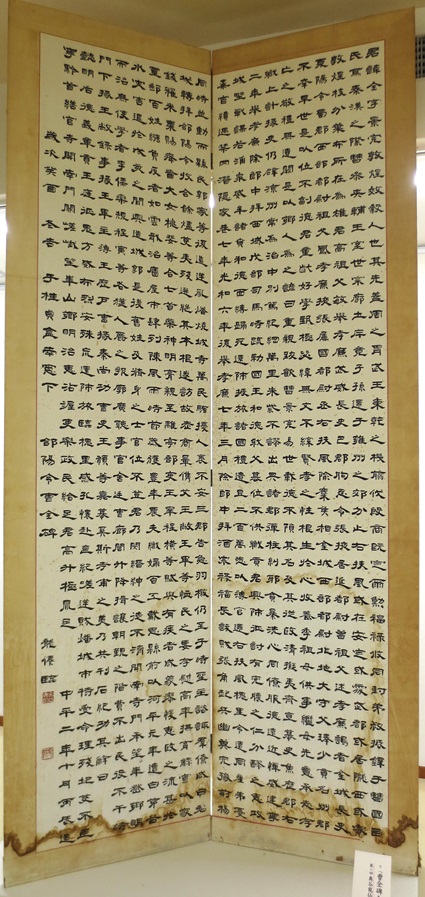 君諱全字景完敦煌效穀人也其先蓋周之冑武王秉乾之機翦伐殷商既定爾勳福祿攸同封弟叔振鐸于曹國因
氏焉秦漢之際曹參夾輔王室世宗廓土斥竟子孫遷于雍州之郊分止右扶風或在安定或處武都或居隴西或家
敦煌枝分葉布所在為雄君高祖父敏舉孝廉武威長史巴郡朐忍令張掖居延都尉曾祖父述孝廉謁者金城長史
夏陽令蜀郡西部都尉祖父鳳孝廉張掖屬國都尉丞右扶風隃麋侯相金城西部都尉北地大守父琫少貫名州郡
不幸早世是以位不副德君童齔好學甄極毖緯無文不綜賢孝之性根生於心收養季祖母供事繼母先意承志存
亡之敬禮無遺闕是以鄉人為之諺曰重親致歡曹景完易世載德不隕其名及其從政清擬夷齊直慕史魚歷郡右
職上計掾史仍辟涼州常為治中別駕紀綱萬里朱紫不謬出典諸郡彈枉糾邪貪暴洗心同僚服德遠近憚威建寧
二年舉孝廉除郎中拜西域戊部司馬時疏勒國王和德弒父篡位不供職貢君興師征討有兗膿之仁分醪之惠攻
城野戰謀若涌泉威牟諸賁和德面縛歸死還師振旅諸國禮遺且二百萬悉以簿官遷右扶風槐里令遭同產弟憂
棄官續遇禁罔潛隱家巷七年光和六年復舉孝廉七年三月除郎中拜酒泉祿福長訞賊張角起兵幽冀兗豫荊楊
同時並動而縣民郭家等復造逆亂燔燒城寺萬民騷擾人裹不安三郡告急羽檄仍至于時聖主諮諏群僚咸曰君
哉轉拜郃陽令收合餘燼芟夷殘迸絕其本根遂訪故老商量儁艾王敞王畢等恤民之要存慰高年撫育鰥寡以家
錢糴米粟賜癃盲大女桃婓等合七首藥神明膏親至離亭部吏王宰程橫等賦與有疾者咸蒙瘳悛惠政之流甚於
置郵百姓繈負反者如雲戢治廧屋市肆列陳風雨時節歲獲豐年農夫織婦百工戴恩縣前以河平元年遭白茅谷
水災害退於戌亥之間興造城郭是後舊姓及脩身之士官位不登君乃閔縉紳之徒不濟開南寺門承望華嶽鄉明
而治庶使學者李儒欒規程寅等各獲人爵之報廓廣聽事官舍廷曹廊閣升降揖讓朝覲之階費不出民役不干時
門下掾王敞錄事掾王畢主簿王歷戶曹掾秦尚功曹史王顓等嘉慕奚斯考甫之美乃共刊石紀功其辭曰
懿明后德義章貢王庭征鬼方威布烈安殊荒還師旅臨槐里感孔懷赴喪紀嗟逆賊燔城市特受命理殘圮芟不臣
寧黔首繕官寺開南門闕嵯峨望華山鄉明治惠沾渥吏樂政民給足君高升極鼎足 中平二年十月丙辰造
歲次癸酉 冬吉 于桂 盦 窗下 郃陽令曹全碑 臨